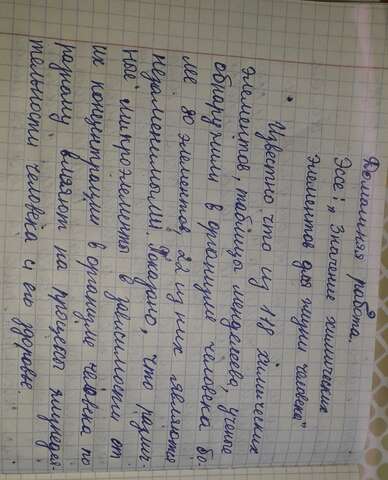 Домашняя работа.
Эссе: „Значение химических
элементов для жизни человека"
Известно что из 118 химических
элементов, таблицы менделеева, учёные
обнаружили в организме человека бо-
лее 80 элементов, 22 из них являются
незаменимыми. Показано, что различ-
ные микроэлементы в зависимости от
их концентрации в организме человека по
разному влияют на процессы жизнедея-
тельности человека и его здоровье.